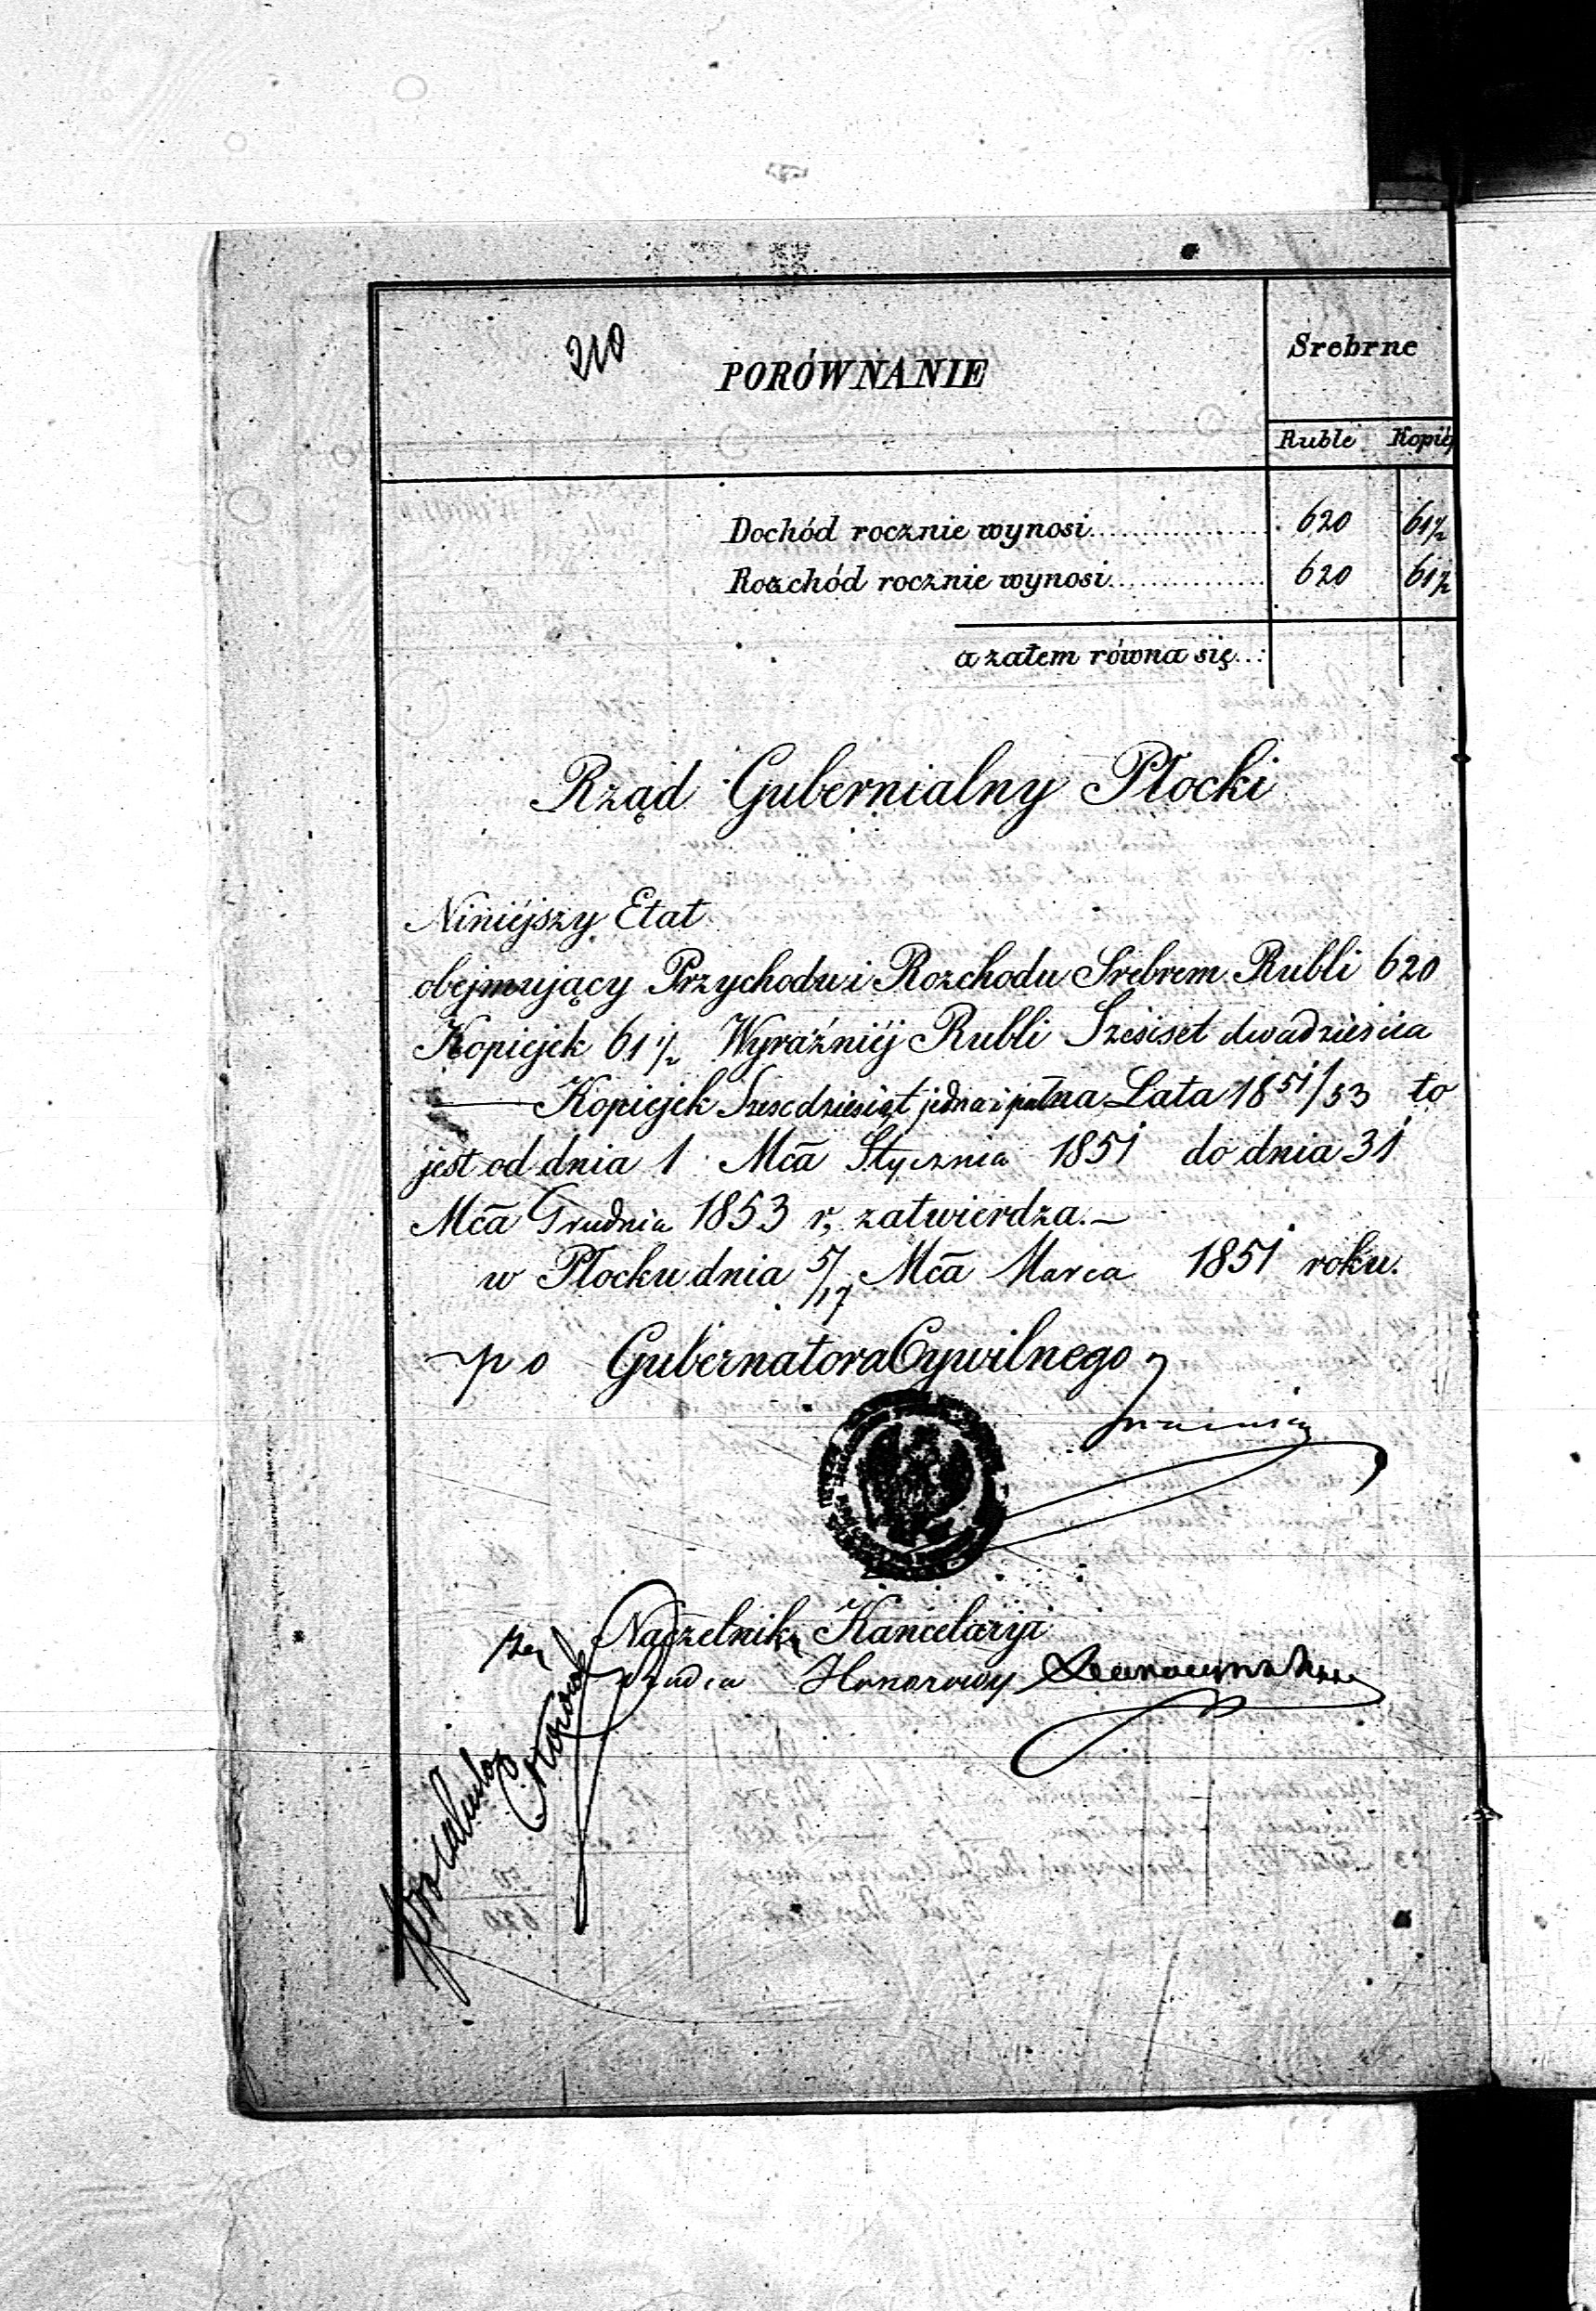 210
PORÓWNANIE
Srebrne
Ruble Kopiéj
Dochód rocznie wynosi 620 61½
Rozchód rocznie wynosi 620 61½
a zatem równa się
Rząd Gubernialny Płocki
Niniéjszy Etat
obejmujący Przychodu i Rozchodu Srebrem Rubli 620
Kopiejek 61½ Wyraźniéj Rubli Szesiset dwadziescia
Kopiejek Szescdziesiąt jedna i pół na Lata 1851/53 to
jest od dnia 1 Mca Stycznia 1851 do dnia 31
Mca Grudnia 1853 r, zatwierdza.—
w Płocku dnia 5/17 Mca Marca 1851 roku.
po Gubernatora Cywilnego
Naczelnika Kancelaryi
Radca Honorowy